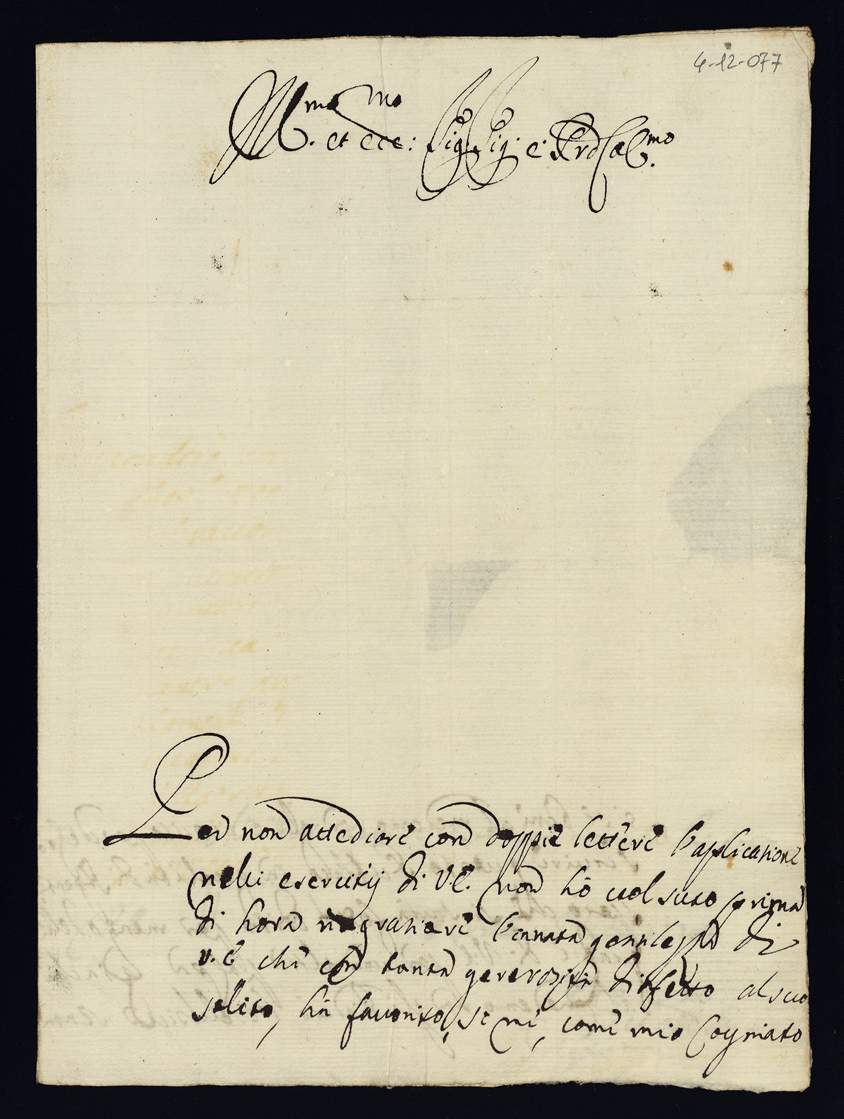 4-12-077
Ill.mo et ecc:mo Sig: Sig: e Prō Col.mo
Per non attediare con doppie lettere l'applicatione
nelli esercitij di V.E. non hò uolsuto prima
di hora ringratiare l'innata gentilezza di
V.E. che con tanta generosità d'affetto al suo
solito, hà fauorito, si mè, come mio Cognato